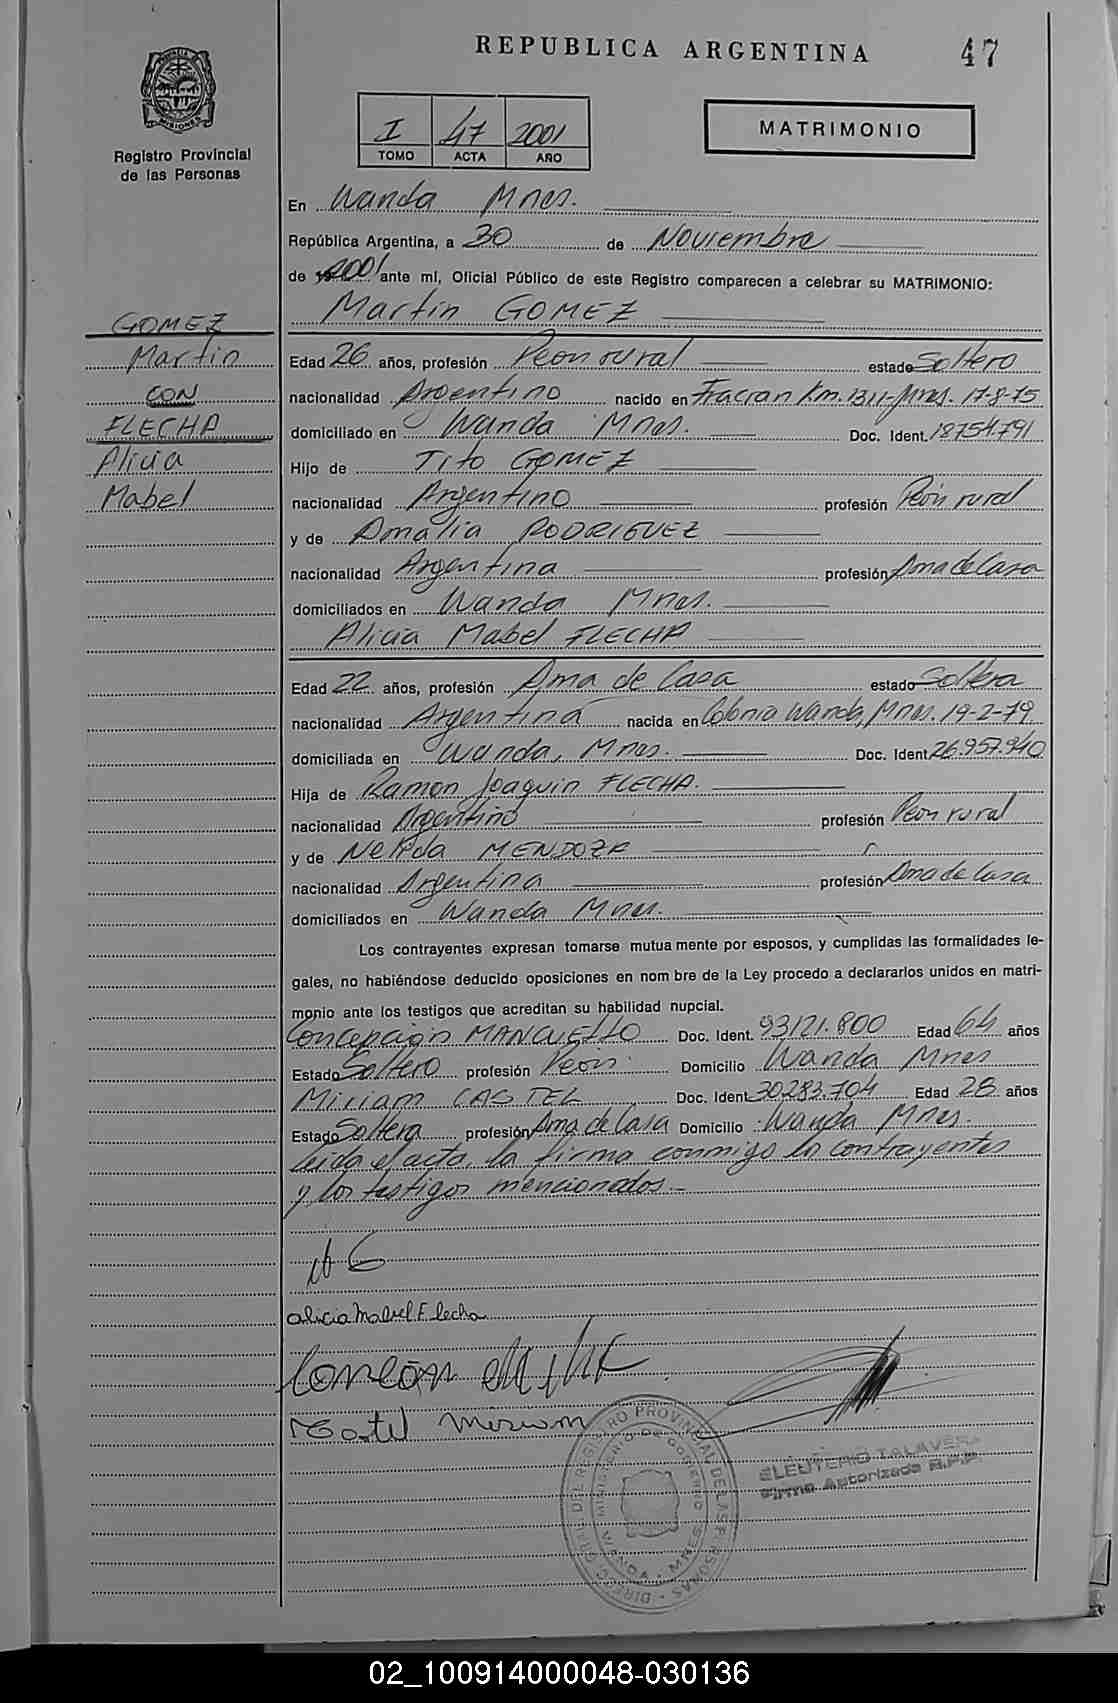 REPUBLICA ARGENTINA
47
PROVINCIA DE MISIONES
Registro Provincial
de las Personas
I 47 2001
TOMO ACTA AÑO
MATRIMONIO
En Wanda Mnes.
República Argentina, a 30 de Noviembre
de 2001 ante mí, Oficial Público de este Registro comparecen a celebrar su MATRIMONIO:
Martin GOMEZ
GOMEZ
Martin
CON
FLECHA
Alicia
Mabel
Edad 26 años, profesión Peon rural estado Soltero
nacionalidad Argentino nacido en Fracran Km. 1311-Mnes. 17-8-75
domiciliado en Wanda Mnes. Doc. Ident. 18754.791
Hijo de Tito GOMEZ
nacionalidad Argentino profesión Peón rural
y de Amalia RODRIGUEZ
nacionalidad Argentina profesión Ama de Casa
domiciliados en Wanda Mnes.
Alicia Mabel FLECHA
Edad 22 años, profesión Ama de Casa estado Soltera
nacionalidad Argentina nacida en Colonia Wanda, Mnes. 19-2-79
domiciliada en Wanda, Mnes. Doc. Ident. 26.957.940
Hija de Ramon Joaquin FLECHA.
nacionalidad Argentino profesión Peon rural
y de Nelida MENDOZA
nacionalidad Argentina profesión Ama de Casa
domiciliados en Wanda Mnes.
Los contrayentes expresan tomarse mutua mente por esposos, y cumplidas las formalidades le-
gales, no habiéndose deducido oposiciones en nom bre de la Ley procedo a declararlos unidos en matri-
monio ante los testigos que acreditan su habilidad nupcial.
Concepción MANCUELLO Doc. Ident. 93121.800 Edad 64 años
Estado Soltero profesión Peon Domicilio Wanda Mnes
Miriam CASTEL Doc. Ident. 30283.704 Edad 28 años
Estado Soltera profesión Ama de Casa Domicilio Wanda Mnes.
Leida el acta, la firma conmigo los contrayentes
y los testigos mencionados.-
Alicia Mabel Flecha
Castel Miriam
DIREC. GRAL. DEL REGISTRO PROVINCIAL DE LAS PERSONAS
MINISTERIO DE GOBIERNO
WANDA - MNES
ELEUTERIO TALAVERA
Firma Autorizada R.P.P.
02_100914000048-030136